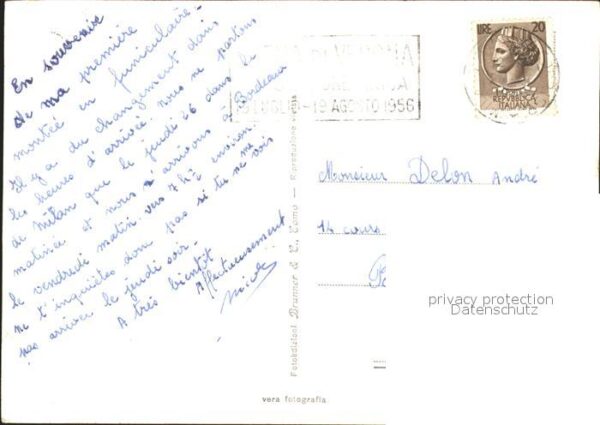 En souvenir
de ma première
montée en funiculaire.
Il y a du changement dans
les heures d'arrivée nous ne partons
de Milan que le jeudi 26 dans la
matinée et nous n'arrivons à Bordeaux
le vendredi matin vers 7 h ½ environ
ne t'inquiètes donc pas si tu ne me vois
pas arriver le jeudi soir.
A très bientôt
Affectueusement
Nicole
Fotoedizioni Brunner & C., Como - Riproduzione vietata
vera fotografia
VERONA
LUGLIO-19 AGOSTO 1956
LIRE 20
REPVBBLICA
ITALIANA
Monsieur Delon André
14 cours
privacy protection
Datenschutz